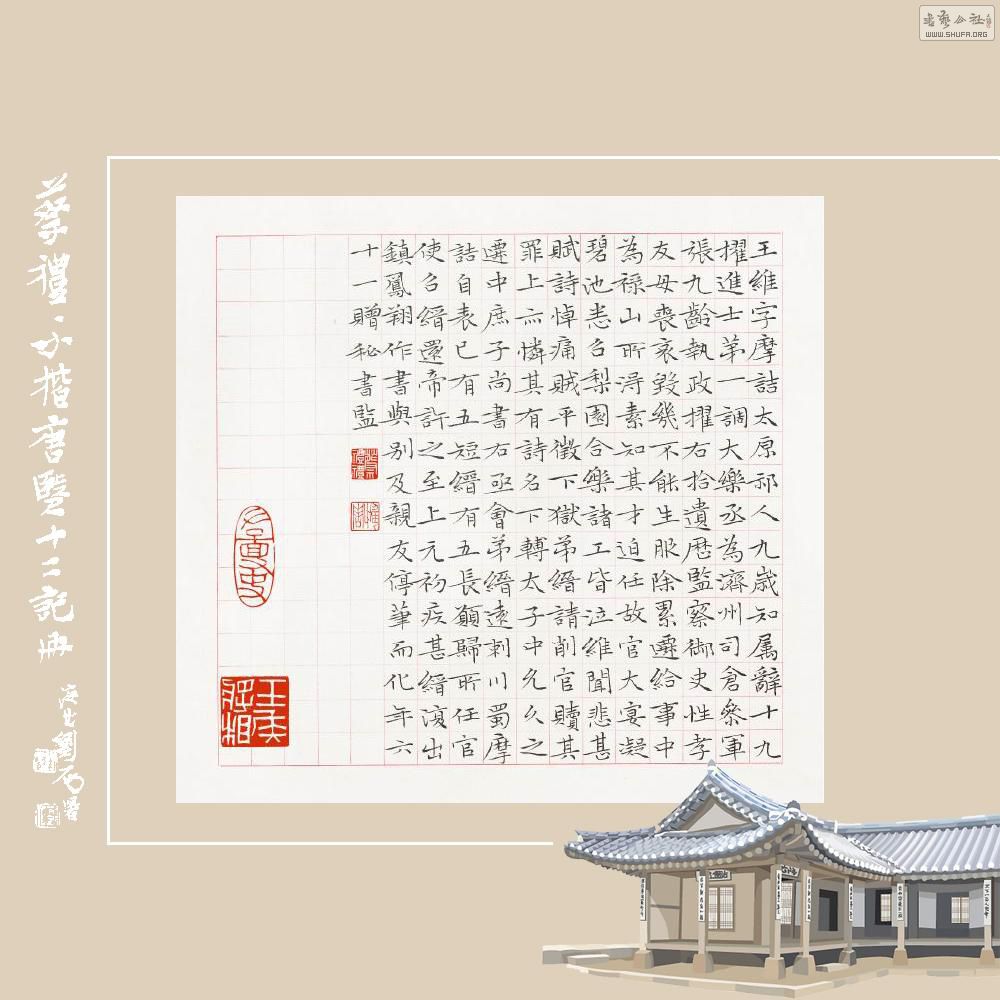 書藝公社
WWW.SHUFA.ORG
王維字摩詰太原祁人九歳知属辭十九
擢進士第一調大樂丞為濟州司倉叅軍
張九齡執政擢右拾遺歷監察御史性孝
友母喪哀毀幾不能生服除累遷給事中
為祿山所淂素知其才迫任故官大宴凝
碧池悉召梨園合樂諸工皆泣維聞悲甚
賦詩悼痛賊平徵下獄弟縉請削官贖其
罪上亦憐其有詩名下轉太子中允久之
遷中庶子尚書右丞會弟縉遠刺川蜀摩
詰自表已有五短縉有五長願歸所任官
使召縉還帝許之至上元初疾甚縉濱出
鎮鳳翔作書與別及親友停筆而化年六
十一贈秘書監
王侯將相
蔡禮·小楷唐賢十二記冊